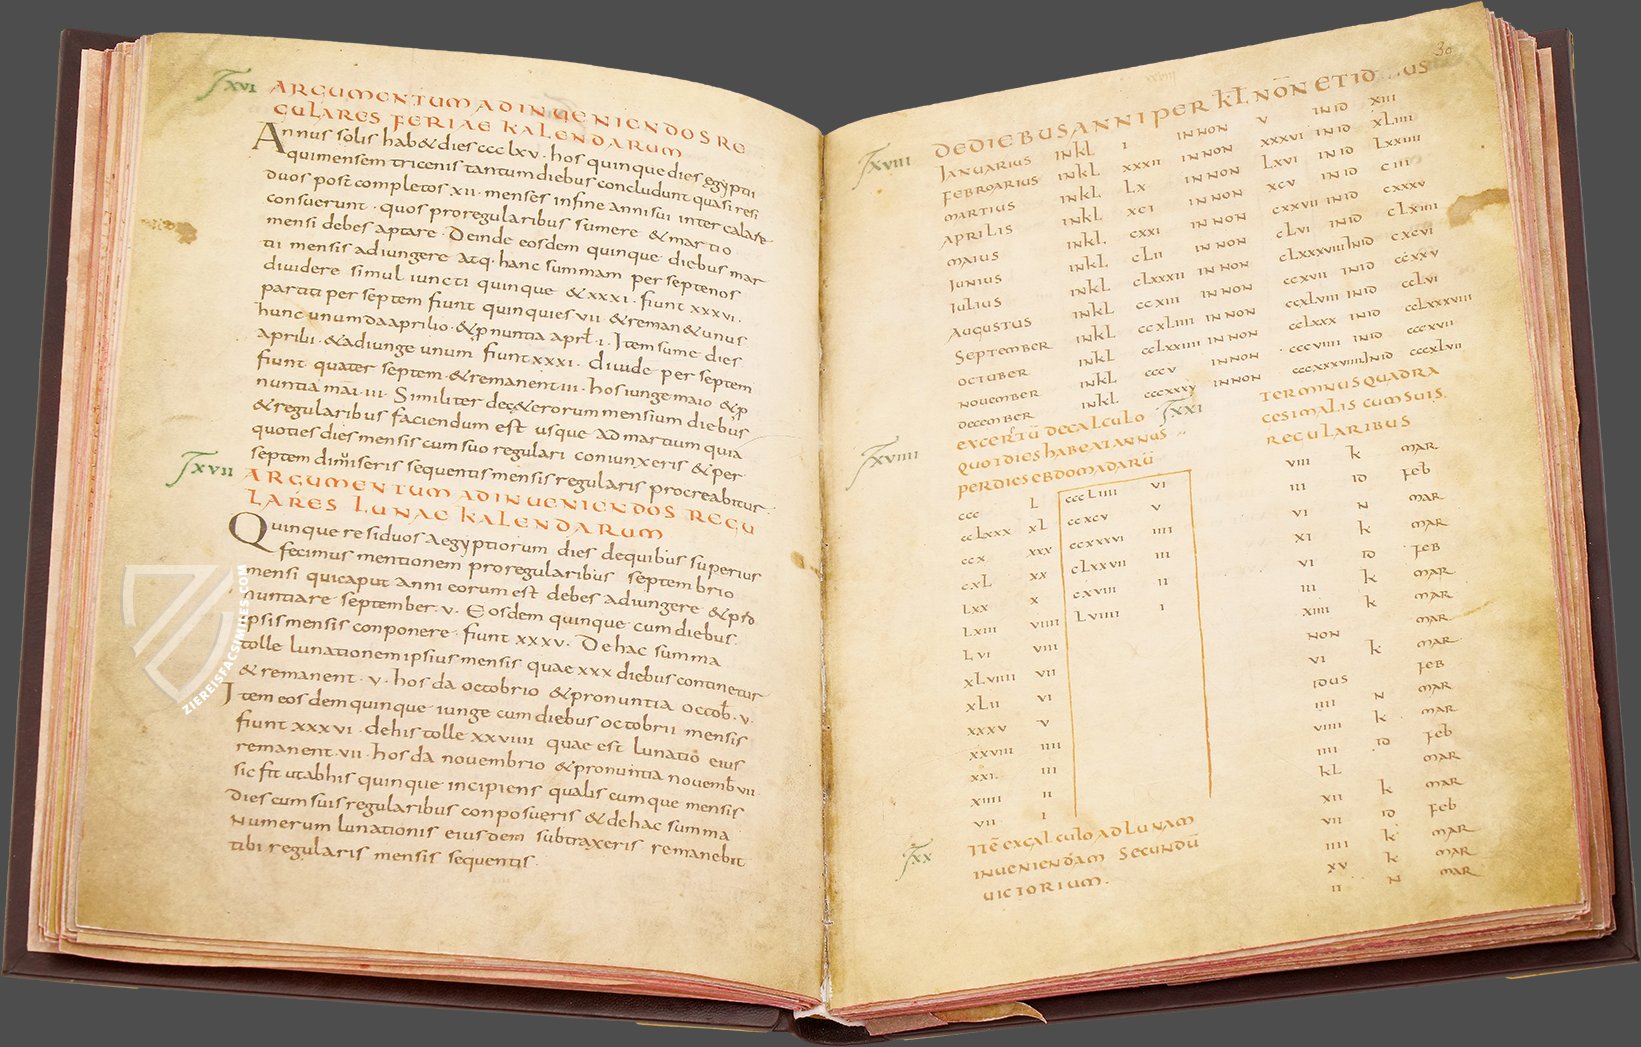 xvi ARGUMENTUM AD INUENIENDOS RE
GULARES FERIAE KALENDARUM
Annus solis hab& dies ccclxv · hos quinque dies egyptii
qui mensem tricenis tantum diebus concludunt quasi resi
duos post completos xii · menses in fine anni sui intercalare
consuerunt · quos pro regularibus sumere & martio
mensi debes aptare · Deinde eosdem quinque diebus mar
tii mensis adiungere atq· hanc summam per septenos
diuidere simul iuncti quinque & xxxi · fiunt xxxvi ·
partiti per septem fiunt quinquies vii · & reman& unus
hunc unum da aprilio · & pnuntia aprł · i · Item sume dies
aprilii · & adiunge unum fiunt xxxi · diuide per septem
fiunt quater septem · & remanent iii · hos iunge maio & p
nuntia mai · iii · Similiter de c&erorum mensium diebus
& regularibus faciendum est usque ad martium quia
quoties dies mensis cum suo regulari coniunxeris & per
septem dimiseris sequentis mensis regularis procreabitur
xvii ARGUMENTUM AD INUENIENDOS REGU
LARES LUNAE KALENDARUM
Quinque residuos aegyptiorum dies de quibus superius
fecimus mentionem pro regularibus septembrio
mensi qui caput anni eorum est debes adiungere & pro
nuntiare september · v · Eosdem quinque cum diebus
ipsis mensis conponere · fiunt xxxv · De hac summa
tolle lunationem ipsius mensis quae xxx diebus continetur
& remanent · v · hos da octobrio & pronuntia octob · v ·
Item eosdem quinque iunge cum diebus octobrii mensis
fiunt xxxvi · de his tolle xxviiii quae est lunatio eius
remanent · vii · hos da novembrio & pronuntia novemb vii ·
sic fit ut ab his quinque incipiens qualiscumque mensis
dies cum suis regularibus conposueris & de hac summa
Numerum lunationis eiusdem subtraxeris remanebit
tibi regularis mensis sequentis ·
ZIEREISFACSIMILES.COM
30
xviii DE DIEBUS ANNI PER KL NON ET ID US
IANUARIUS IN KL I IN NON V IN ID XIII
FEBROARIUS IN KL XXXII IN NON XXXVI IN ID XLIIII
MARTIUS IN KL LX IN NON LXVI IN ID LXXIIII
APRILIS IN KL XCI IN NON XCV IN ID CIII
MAIUS IN KL CXXI IN NON CXXVII IN ID CXXXV
IUNIUS IN KL CLII IN NON CLVI IN ID CLXIIII
IULIUS IN KL CLXXXII IN NON CLXXXVIII IN ID CXCVI
AUGUSTUS IN KL CCXIII IN NON CCXVII IN ID CCXXV
SEPTEMBER IN KL CCXLIIII IN NON CCXLVIII IN ID CCLVI
OCTUBER IN KL CCLXXIIII IN NON CCLXXX IN ID CCLXXXVIII
NOUEMBER IN KL CCCV IN NON CCCVIIII IN ID CCCXVII
DECEMBER IN KL CCCXXXV IN NON CCCXXXVIIII IN ID CCCXLVII
xviiii EXCERTU DE CALCULO
QUOT DIES HABEAT ANNUS
PER DIES EBDOMADARU
CCC L CCCLIIII VI
CCLXXX XL CCXCV V
CCX XXX CCXXXVI IIII
CXL XX CLXXVII III
LXX X CXVIII II
LXIII VIIII LVIIII I
LVI VIII
XLVIIII VII
XLII VI
XXXV V
XXVIII IIII
XXI III
XIIII II
VII I
xx ITE EX CALCULO AD LUNAM
INUENIENDAM SECUNDU
UICTORIUM ·
xxi TERMINUS QUADRA
GESIMALIS CUM SUIS
REGULARIBUS
VIII K MAR
III ID FEB
VI N MAR
XI K MAR
ID FEB
VI K MAR
III K MAR
XIIII K MAR
NON MAR
VI K MAR
IDUS FEB
IIII N MAR
VIIII K MAR
IIII ID FEB
KL MAR
XII K MAR
VII ID FEB
IIII K MAR
XV K MAR
II N MAR